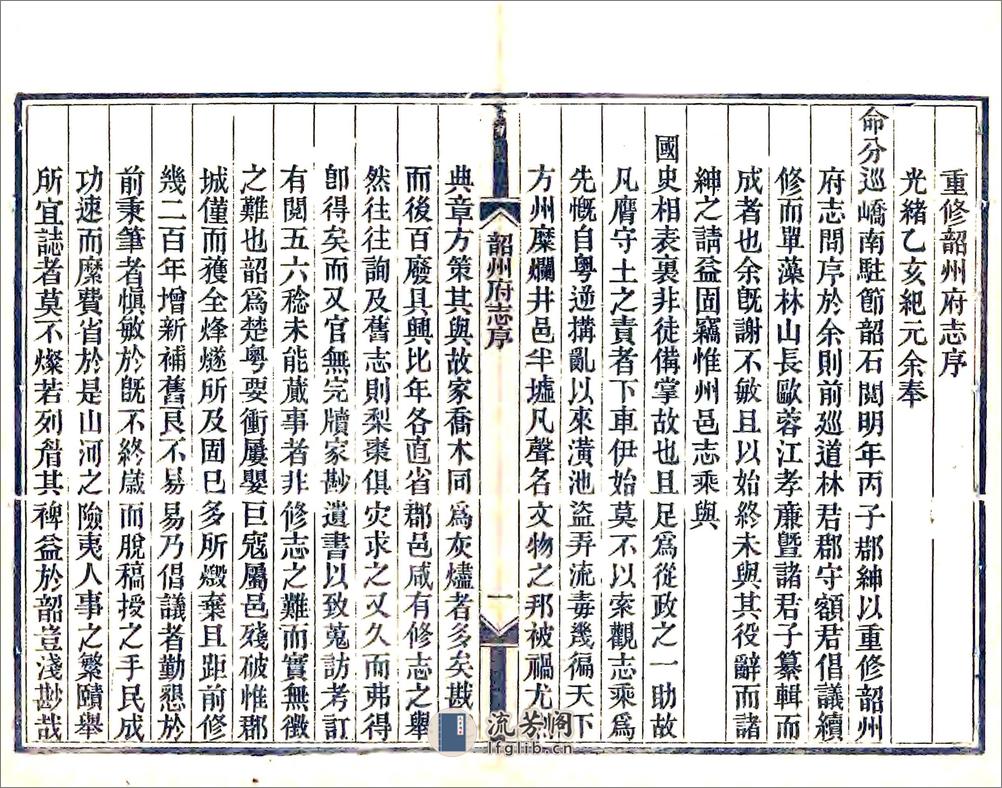 重修韶州府志序
光緒乙亥紀元余奉
命分巡嶠南駐節韶石閱明年丙子郡紳以重修韶州
府志問序於余則前巡道林君郡守額君倡議續
修而單藻林山長歐蓉江孝廉暨諸君子纂輯而
成者也余既謝不敏且以始終未與其役辭而諸
紳之請益固竊惟州邑志乘與
國史相表裏非徒備掌故也且足爲從政之一助故
凡膺守土之責者下車伊始莫不以索觀志乘爲
先慨自粤逆搆亂以來潢池盜弄流毒幾徧天下
方州糜爛井邑半墟凡聲名文物之邦被禍尤
韶州府志序
一
典章方策其與故家喬木同爲灰燼者多矣戡
而後百廢具興比年各直省郡邑咸有修志之舉
然往往詢及舊志則梨棗俱灾求之又久而弗得
卽得矣而又官無完牘家尠遺書以致蒐訪考訂
有閱五六稔未能蕆事者非修志之難而實無徵
之難也韶爲楚粤要衝屢嬰巨寇屬邑殘破惟郡
城僅而獲全烽燧所及固已多所燬棄且距前修
幾二百年增新補舊良不易易乃倡議者勤懇於
前秉筆者愼敏於旣不終歲而脫稿授之手民成
功速而縻費省於是山河之險夷人事之繁賾舉
所宜誌者莫不燦若列眉其裨益於韶豈淺尠哉
流芳阁
lfglib.cn